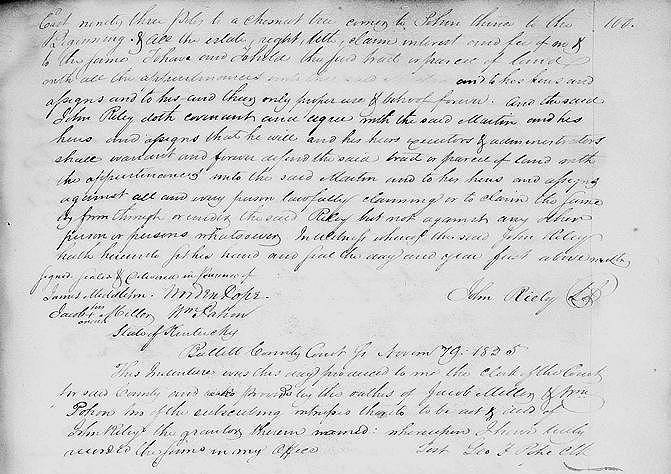 East ninety three poles to a chesnut tree corner to Pohon thence to the 100.
Beginning & all the estate, right, title, claim interest and fee of in &
to the same To have and To hold the said tract or parcel of land
with all the appurtenances unto the said and to his heirs and
assigns and to his and their only proper use & behoof forever. And the said
John Riley doth covenant and agree with the said Martin and his
heirs and assigns that he will and his heirs executors & administrators
shall warrant and forever defend the said tract or parcel of land with
the appurtenances unto the said Martin and to his heirs and assigns
against all and every person lawfully claiming or to claim the same
by from through or under the said Riley but not against any other
person or persons whatsoever In witness whereof the said John Riley
hath hereunto set his hand and seal the day and year first above written
signed sealed & delivered in presence of
James Middleton. Worden Pope. John Riely LS
Jacob his mark Miller Wm Pohon
State of Kentucky
Bullitt County Court Sc Novem 1825
This Indenture was this day produced to me the clerk of the Court
in said County and proved by the oaths of Jacob Miller & Wm
Pohon two of the subscribing witnesses thereto to be the act & deed of
John Riley the grantor therein named: whereupon I have truly
recorded the same in my office Test. Clk